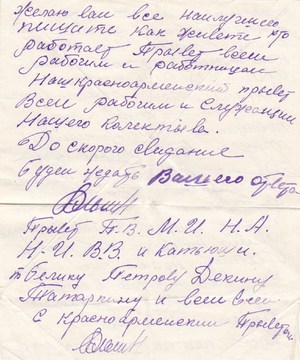 Желаю вам все наилучшее
пишите как живете кто
работает Привет всем
рабочим и работницам
Наш красноармейский привет
Всем рабочим и служащим
Нашего колектива.
До скорого свидание
Будем ждать Вашего ответа
Привет П.В. М.И. Н.А.
Н.И. В.В. и Катюши.
т Белику Петрову Декину
Татаркину и всем
С красноармейским Приветом